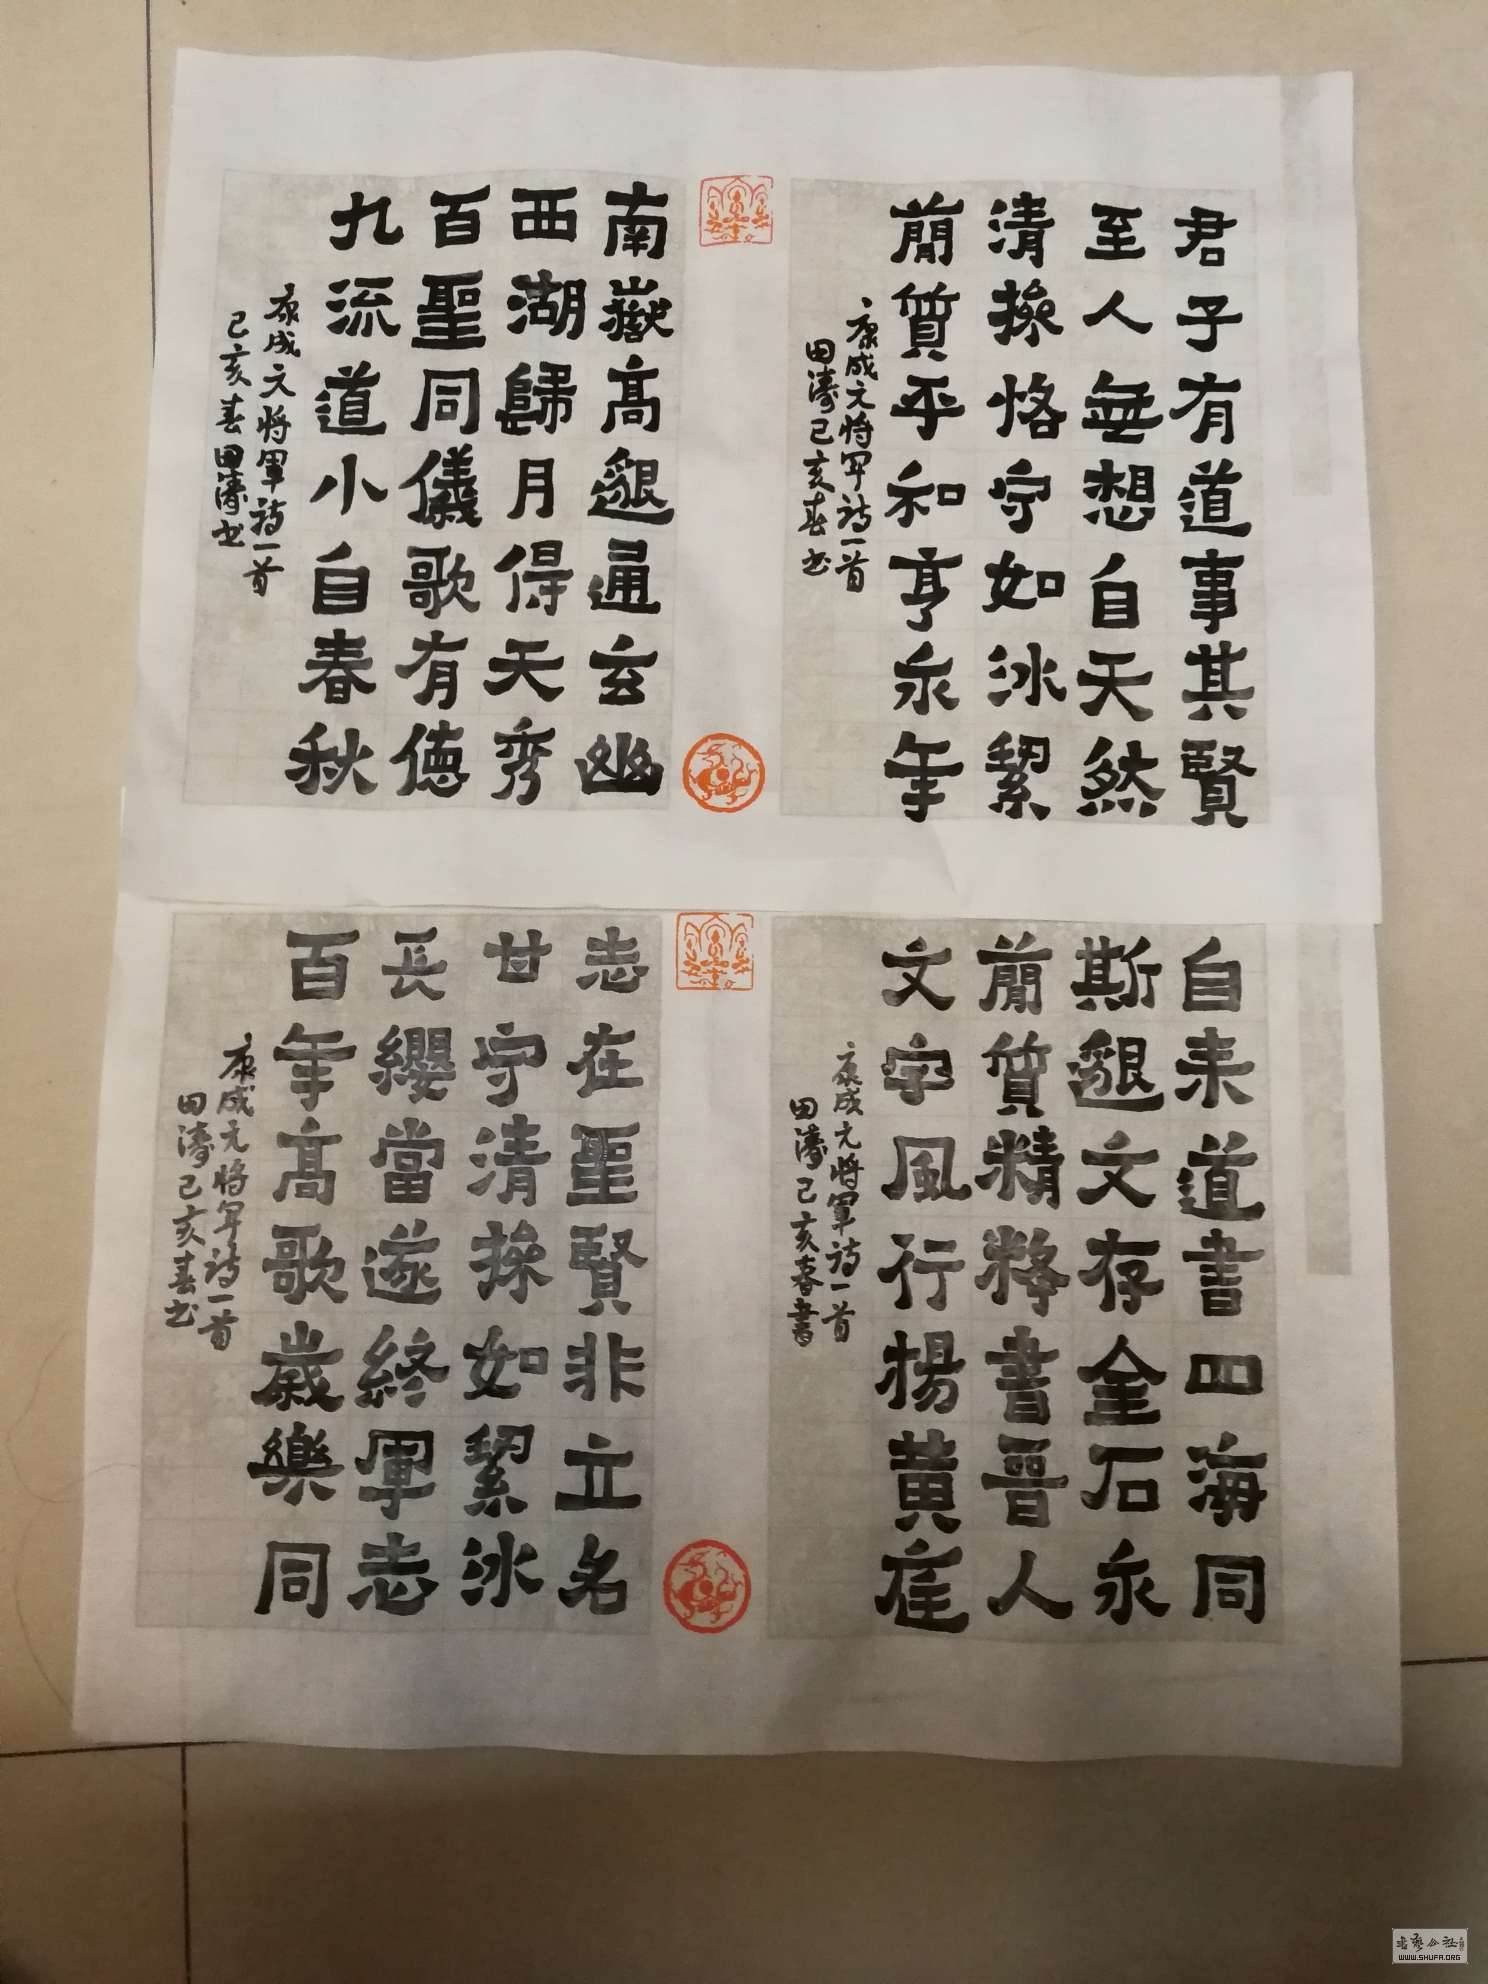 君子有道事其賢
至人無想自天然
清操恪守如冰絜
簡質平和亨永年
康成元将军诗一首
田濤己亥春书
南嶽高邈通玄幽
西湖歸月得天秀
百聖同儀歌有德
九流道小自春秋
康成元将軍诗一首
己亥春田濤书
自耒道書四海同
斯邈文存金石永
簡質精粹書晉人
文字風行揚黃庭
康成元将軍诗一首
田濤己亥春書
志在聖賢非立名
甘守清操如絜冰
長纓當遂終軍志
百年高歌歲樂同
康成元将军诗一首
田濤己亥春书
书艺公社
WWW.SHUFA.ORG